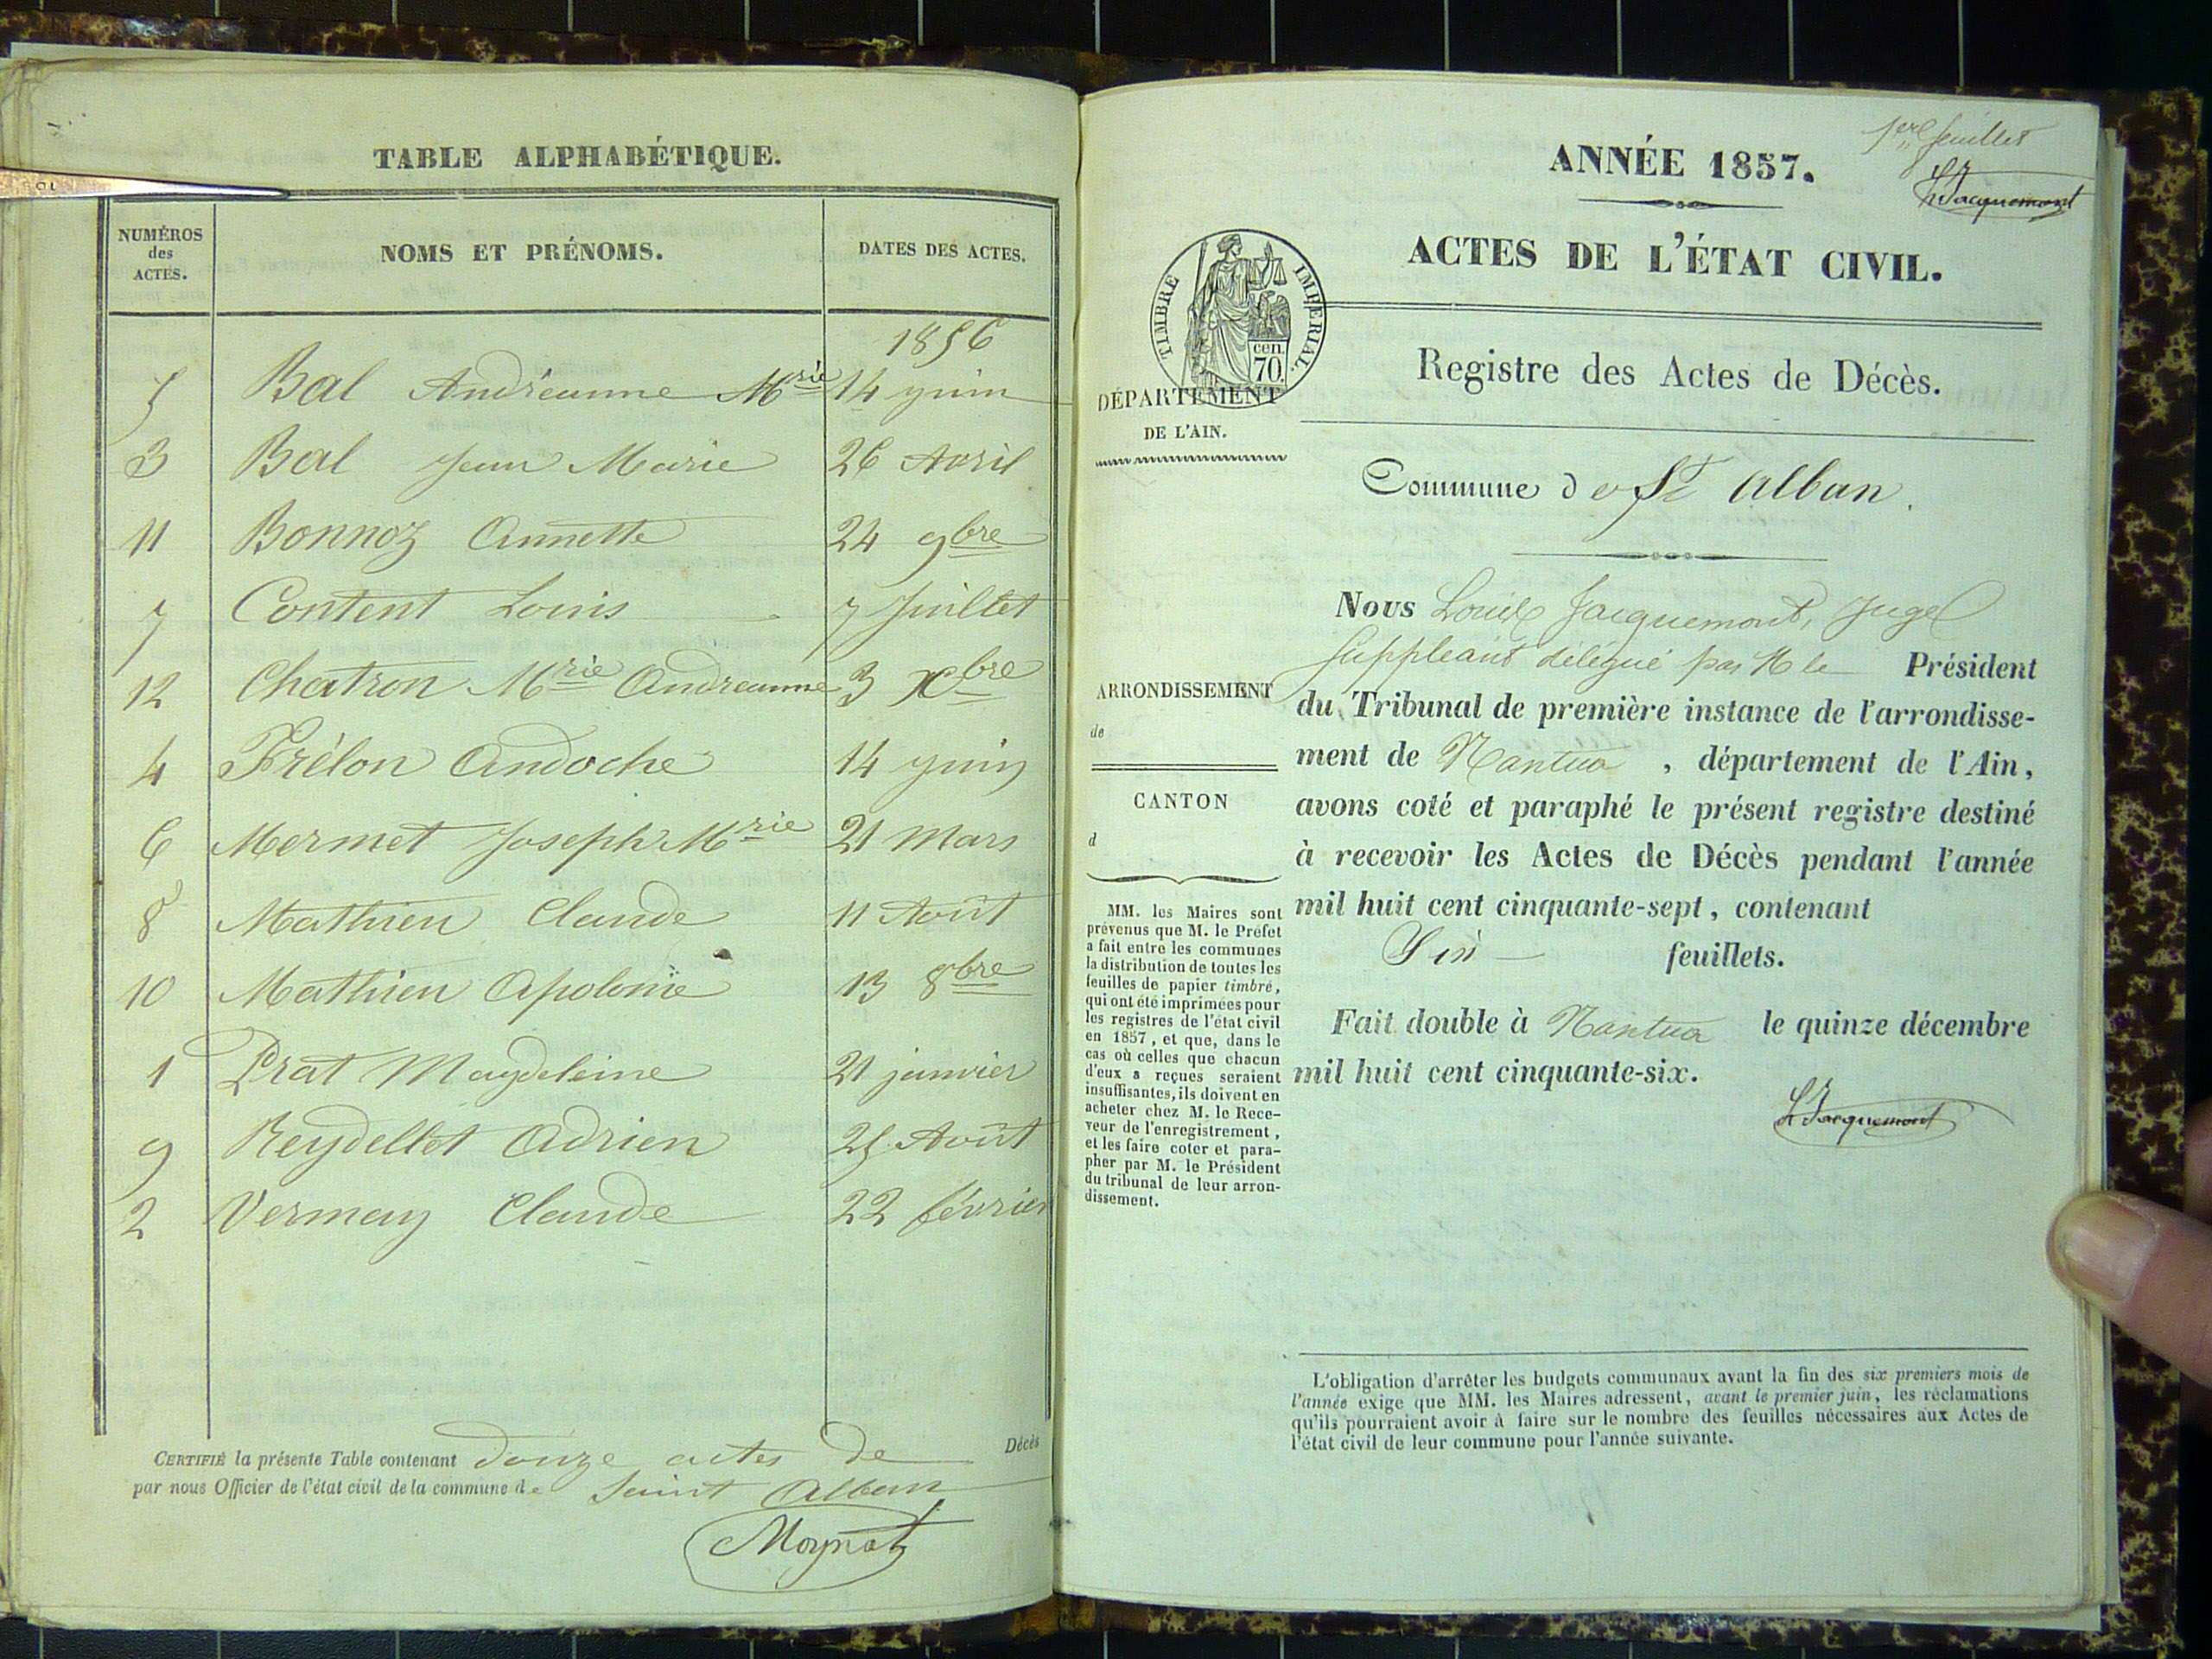 TABLE ALPHABÉTIQUE.
NUMÉROS
des
ACTES.
NOMS ET PRÉNOMS.
DATES DES ACTES.
1856
5 Bal Andréanne Mrie 14 juin
3 Bal Jean Marie 26 Avril
11 Bonnoz Annette 24 9bre
7 Content Louis 7 Juillet
12 Chatron Mrie Andreanne 3 Xbre
4 Frélon Andoche 14 juin
6 Mermet Joseph Mrie 21 Mars
8 Mathieu Claude 11 Août
10 Mathieu Apolonie 13 8bre
1 Prat Magdeleine 21 janvier
9 Reydellet Adrien 25 Août
2 Vermay Claude 22 février
CERTIFIÉ la présente Table contenant douze actes de Décès
par nous Officier de l'état civil de la commune de Saint Alban
Moynat
1er feuillet
L Jacquemont
ANNÉE 1857.
ACTES DE L'ÉTAT CIVIL.
TIMBRE IMPERIAL.
cen.
70.
DÉPARTEMENT
DE L'AIN.
Registre des Actes de Décès.
Commune de St Alban.
ARRONDISSEMENT
de
CANTON
d
MM. les Maires sont
prévenus que M. le Préfet
a fait entre les communes
la distribution de toutes les
feuilles de papier timbré,
qui ont été imprimées pour
les registres de l'état civil
en 1857, et que, dans le
cas où celles que chacun
d'eux a reçues seraient
insuffisantes, ils doivent en
acheter chez M. le Rece-
veur de l'enregistrement,
et les faire coter et para-
pher par M. le Président
du tribunal de leur arron-
dissement.
Nous Louis Jacquemont, Juge
Suppléant délégué par M le Président
du Tribunal de première instance de l'arrondisse-
ment de Nantua, département de l'Ain,
avons coté et paraphé le présent registre destiné
à recevoir les Actes de Décès pendant l'année
mil huit cent cinquante-sept, contenant
Six feuillets.
Fait double à Nantua le quinze décembre
mil huit cent cinquante-six.
L Jacquemont
L'obligation d'arrêter les budgets communaux avant la fin des six premiers mois de
l'année exige que MM. les Maires adressent, avant le premier juin, les réclamations
qu'ils pourraient avoir à faire sur le nombre des feuilles nécessaires aux Actes de
l'état civil de leur commune pour l'année suivante.